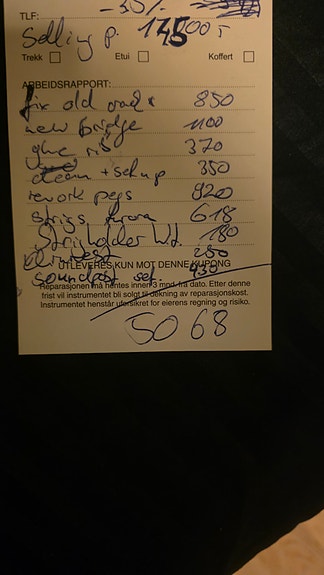 TLF: -35%
Selling p. 17500,-
Trekk Etui Koffert
ARBEIDSRAPPORT:
fix old crack 850
new bridge 1100
glue rib 370
clean + set up 350
rework pegs 920
strings aurora 618
Stringholder Wt. 180
UTLEVERES KUN MOT DENNE KUPONG 250
soundpost set. 430
Reparasjonen må hentes innen 3 mnd. fra dato. Etter denne
frist vil instrumentet bli solgt til dekning av reparasjonskost.
Instrumentet henstår uforsikret for eierens regning og risiko.
5068